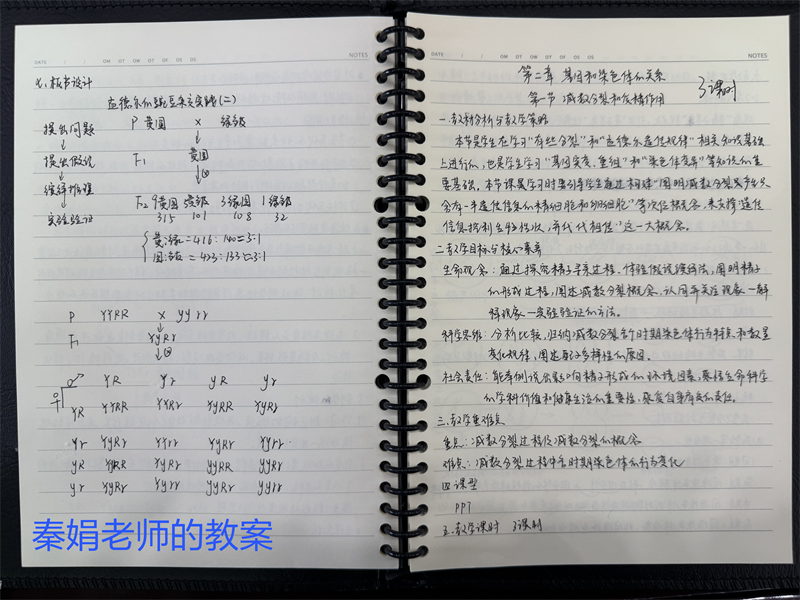 DATE / / OM OT OW OT OF OS OS NOTES
七、板书设计
孟德尔的豌豆杂交实验(二)
提出问题 P 黄圆 x 绿皱
↓ ↓
提出假说 F₁ 黄圆
↓ ↓⊗
演绎推理
↓ F₂ 9黄圆 3黄皱 3绿圆 1绿皱
实验验证 315 101 108 32
黄:绿=416:140≈3:1
圆:皱=423:133≈3:1
P YYRR x yyrr
↓
F₁ YyRr
↓⊗
♀ ♂ YR Yr yR yr
YR YYRR YYRr YyRR YyRr
Yr YYRr YYrr YyRr Yyrr
yR YyRR YyRr yyRR yyRr
yr YyRr Yyrr yyRr yyrr
秦娟老师的教案
DATE / / OM OT OW OT OF OS OS NOTES
第二章 基因和染色体的关系
第一节 减数分裂和受精作用 3课时
一、教材分析与教学策略
本节是学生在学习“有丝分裂”和“孟德尔遗传规律”相关知识基础
上进行的,也是学生学习“基因突变、重组”和“染色体变异”等知识的重
要基础。本节课是学习时要引导学生通过构建“阐明减数分裂产生只
含有一半遗传信息的精细胞和卵细胞”等次位概念,来支撑“遗传
信息控制生物性状,并代代相传”这一大概念。
二、教学目标与核心素养
生命观念:通过探究精子寻亲过程,体验假说演绎法,阐明精子
的形成过程,阐述减数分裂概念,认同并关注现象一解
释现象一实验验证的方法。
科学思维:分析比较,归纳减数分裂各个时期染色体行为特点和数量
变化规律,阐述多样性的原因。
社会责任:能举例说出影响精子形成的环境因素,聚焦生命科学
的学科价值和健康生活的重要性,承度自身应负的责任。
三、教学重难点
重点:减数分裂过程及减数分裂的概念
难点:减数分裂过程中各时期染色体的行为变化
四 课型
PPT
五、教学课时 3课时